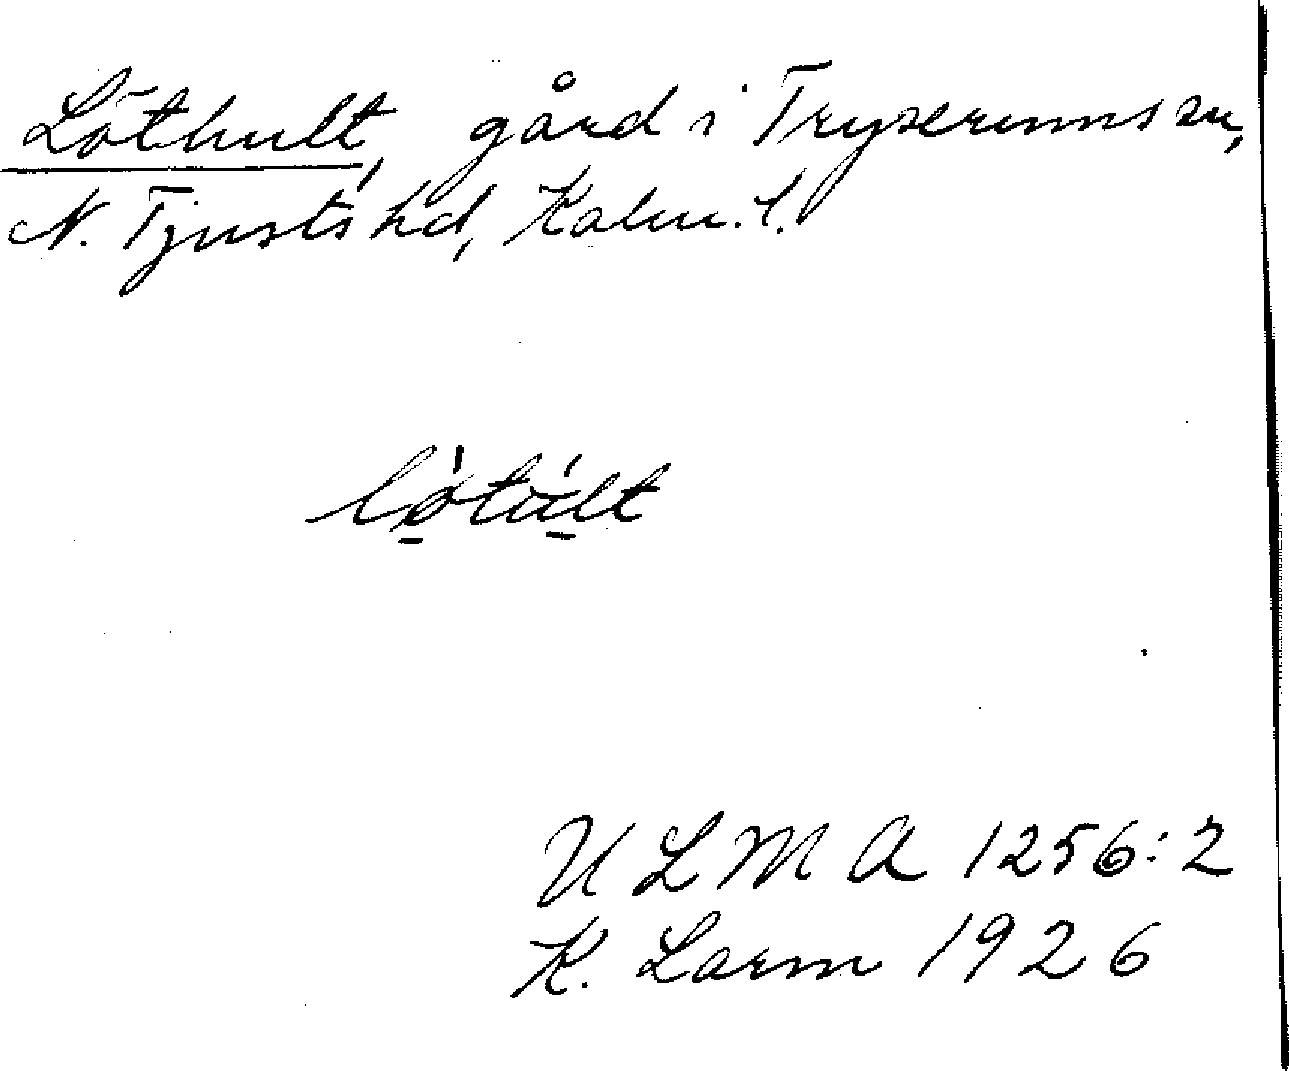 Löthult, gård i Tryserums sn,
N. Tjusts hd, Kalm. l.
lǿ̱tú̱lt
U L M A 1256:2
K. Larm 1926